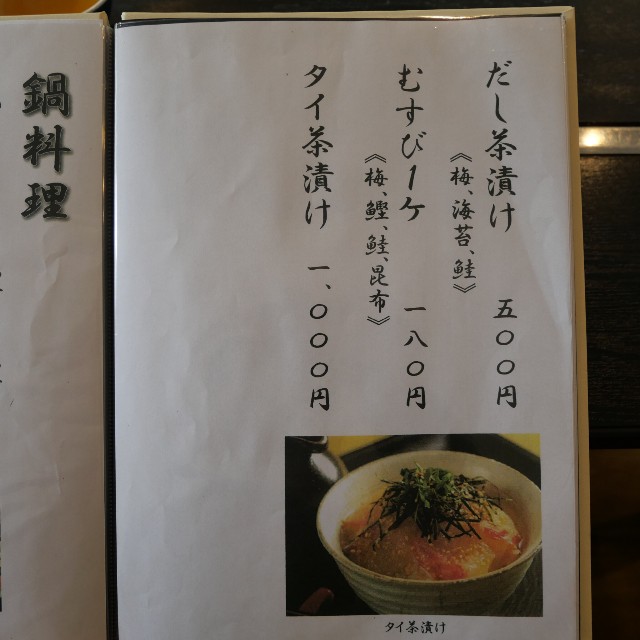 だし茶漬け 五〇〇円
《梅、海苔、鮭》
むすび1ケ 一八〇円
《梅、鰹、鮭、昆布》
タイ茶漬け 一、〇〇〇円
タイ茶漬け
鍋料理